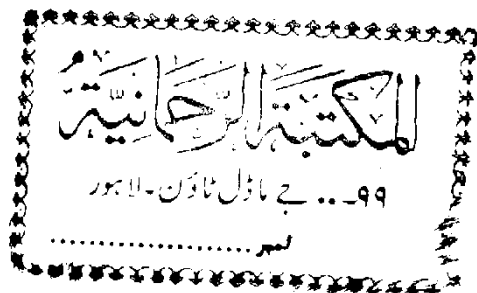 المكتبة الرحمانية
۹۹۔.. جے ماڈل ٹاؤن۔ لاہور
نمبر....................